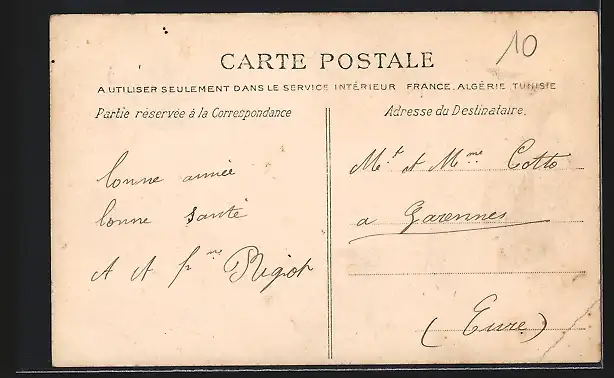 10
CARTE POSTALE
A UTILISER SEULEMENT DANS LE SERVICE INTÉRIEUR FRANCE. ALGÉRIE TUNISIE
Partie réservée à la Correspondance
Adresse du Destinataire.
bonne année
bonne santé
A A
Mr et Mme Cotto
a Garennes
(Eure)